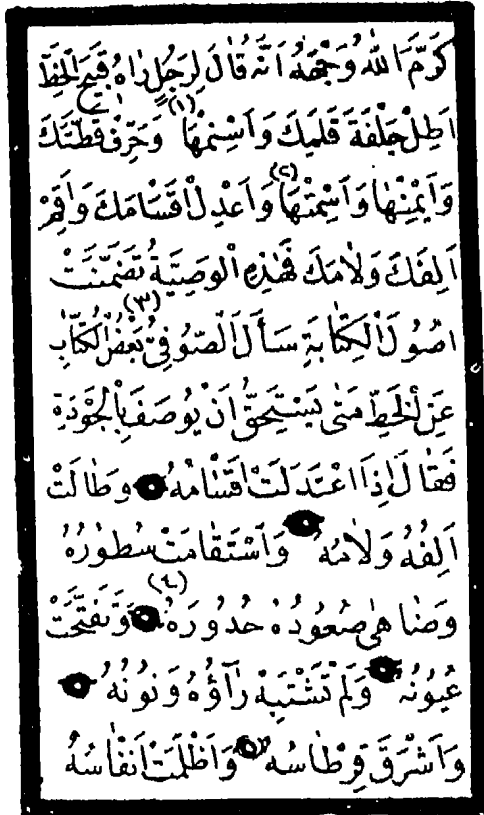 كَرَّمَ اللّٰهُ وَجْهَهُ اَنَّهُ قَالَ لِرَجُلٍ رَاٰهُ قَبِيحَ الْخَطِّ
اَطِلْ جِلْفَةَ قَلَمِكَ وَاَسْمِنْهَا (١) وَحَرِّفْ قَطَّتَكَ
وَاَيْمِنْهَا وَاَسْمِتْهَا (٢) وَاَعْدِلْ اَقْسَامَكَ وَاَقِمْ
اَلِفَكَ وَلَامَكَ فَهٰذِهِ الْوَصِيَّةُ تَضَمَّنَتْ
اُصُولَ الْكِتَابَةِ (٣) سَأَلَ الصُّوفِيُّ بَعْضَ الْكُتَّابِ
عَنِ الْخَطِّ مَتٰى يَسْتَحِقُّ اَنْ يُوصَفَ بِالْجَوْدَةِ
فَقَالَ اِذَا اعْتَدَلَتْ اَقْسَامُهُ وَطَالَتْ
اَلِفُهُ وَلَامُهُ وَاَسْتَقَامَتْ سُطُورُهُ
وَضَاهٰى صُعُودُهُ حُدُورَهُ (٤) وَتَفَتَّحَتْ
عُيُونُهُ وَلَمْ تَشْتَبِهْ رَاۤؤُهُ وَنُونُهُ
وَاَشْرَقَ قِرْطَاسُهُ وَاَظْلَمَتْ اَنْفَاسُهُ